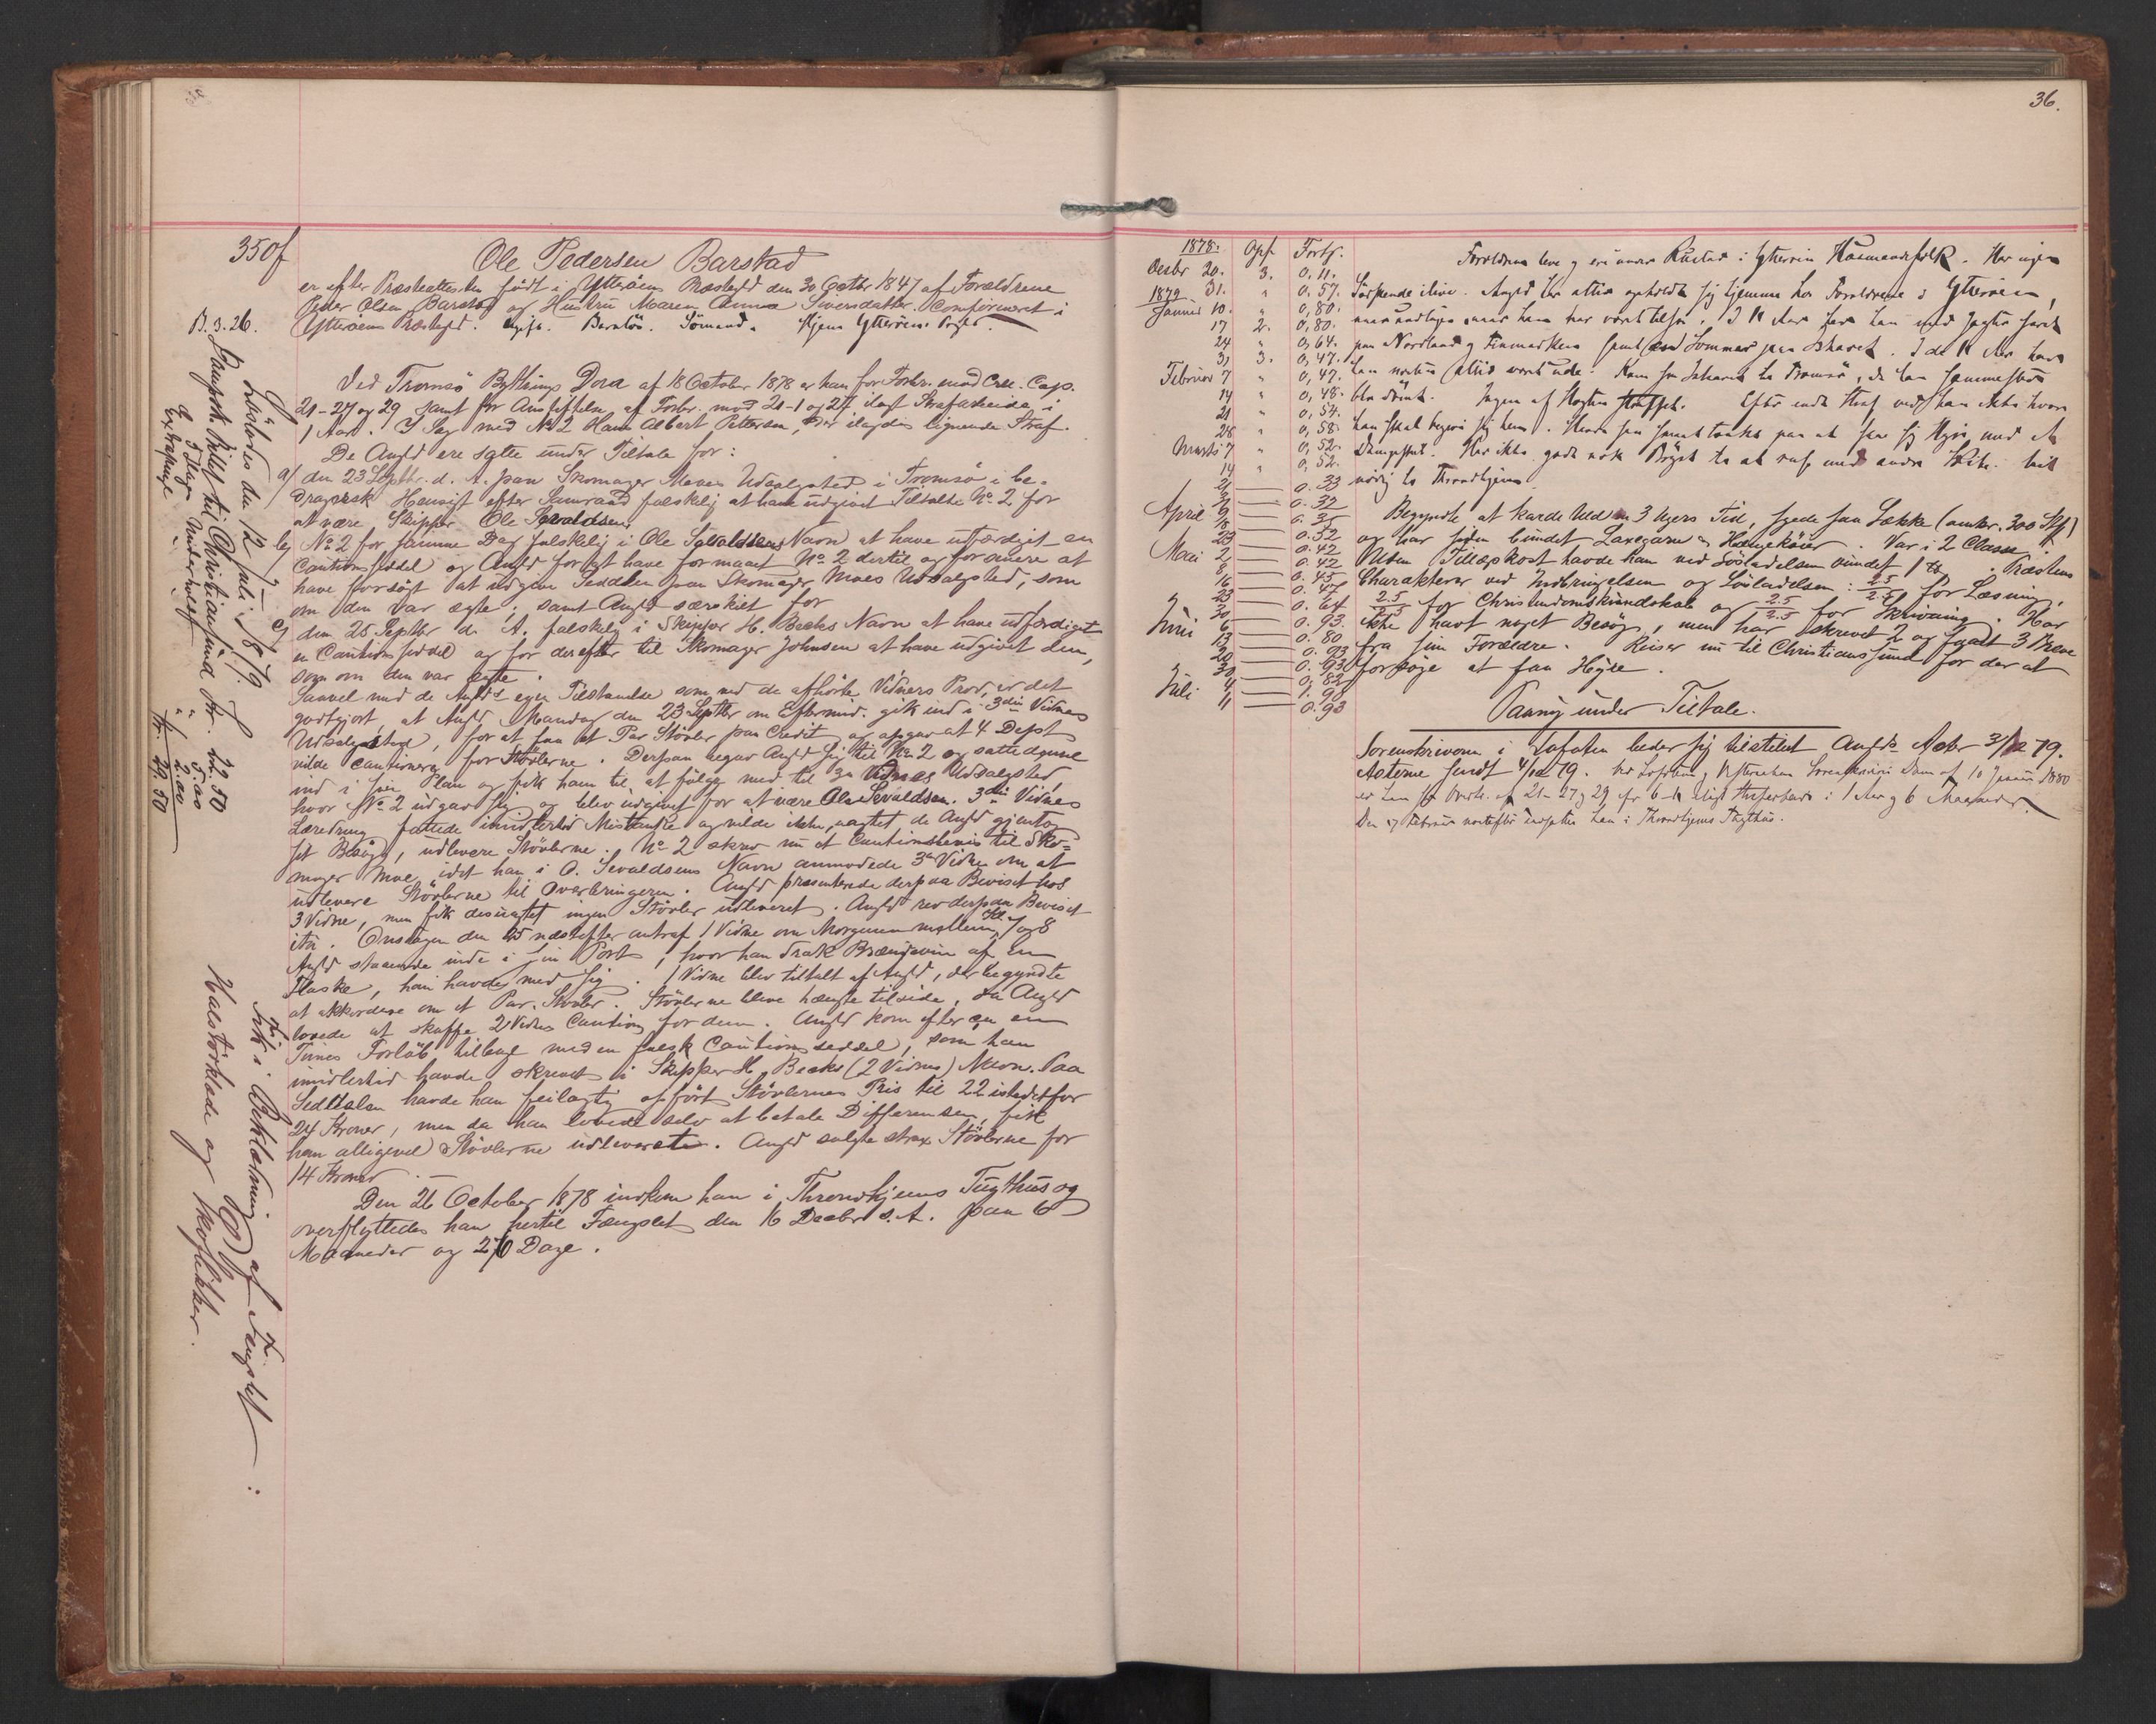 350f
Ole Pedersen Barstad
er efter Præsteattesten født i Ytterøens Præstegjd den 30 Octbr 1847 af Forældrene
Peder Olsen Barstad og Hustru Maren Anna Siversdatter. Confirmeret i
Ytterøens Præstegjd. Ugift. Barnløs. Sømand. Hjem Ytterøens Præstegjd.
B. 3. 26.
Løslodes den 12 Juli 1879.
Dampsk. Billet til Christiansund Kr. 22.50
d. 3 Dages Underhold " 5.00
Extrapenge " 2.00
Kr. 29.50
Ved Tromsø Bythings Dom af 18 October 1878 er han for Forbr. mod Crl. Cap.
21-27 og 29 samt for Anstiftelse af Forbr. mod 21-1 og 27 ilagt Strafarbeide i
1 Aar. I Sag med No 2 Hans Albert Pettersen, der ilagdes lignende Straf.
De Angld ere satte under Tiltale for:
a) den 23 Septbr. d. A. paa Skomager Moes Udsalgsted i Tromsø i be-
dragersk Hensigt efter Samraad falskelig at have udgivet Tiltalte No 2 for
at være Skipper Ole Sevaldsen
b) No 2 for samme Dag falskelig i Ole Sevaldsens Navn at have utfærdiget en
Cautionsseddel og Angld for at have formaaet No 2 dertil og for senere at
have forsøgt at udgive Seddelen paa Skomager Moes Udsalgsted, som
om den var ægte, samt Angld særskilt for
c) den 25 Septbr d. A. falskelig i Skipper H. Becks Navn at have udfærdiget
en Cautionsseddel og for derefter til Skomager Johnsen at have udgivet den,
som om den var ægte.
Saavel med de Anglds egen Tilstaaelse som ved de afhørte Vidners Prov, er det
godtgjort, at Angld Mandag den 23 Septbr om Eftermid. gik ind i 3die Vidnes
Udsalgsted, for at faa et Par Støvler paa Credit og opgav at 4 Depst
vilde cautionere for Støvlerne. Derpaa begav Angld sig til No 2 og satte denne
ind i sin Plan og fik ham til at følge med til 3die Vidnes Udsalgsted,
hvor No 2 udgav sig og blev udgivet for at være Ole Sevaldsen. 3die Vidnes
Læredreng fattede imidlertid Mistanke og vilde ikke, uagtet de Angld gjentog
sit Besøg, udlevere Støvlerne. No 2 skrev nu et Cautionsbevis til Sko-
mager Moe, idet han i O. Sevaldsens Navn anmodede 3die Vidne om at
udlevere Støvlerne til Overbringeren. Angld præsenterede derpaa Beviset hos
3 Vidne, men fik desuagtet ingen Støvler udleveret. Angld rev derpaa Beviset
itu. Onsdagen den 25 næstefter antraf 1 Vidne om Morgenen mellem Kl. 7 og 8
Angld staaende inde i sin Port, hvor han drak Brændevin af en
Flaske, han havde med sig. 1 Vidne blev tiltalt af Angld, der begyndte
at akkordere om et Par Støvler. Støvlerne bleve hængte tilside, da Angld
lovede at skaffe 2 Vidnes Caution for dem. Angld kom efter en
Times Forløb tilbage med en falsk Cautionsseddel, som han
imidlertid havde skrevet i Skipper H. Becks (2 Vidnes) Navn. Paa
Seddelen havde han feilagtig opført Støvlernes Pris til 22 istedetfor
24 Kroner, men da han lovede selv at betale Differensen, fik
han alligevel Støvlerne udleverede. Angld solgte strax Støvlerne for
14 Kroner.
Den 26 October 1878 indkom han i Throndhjems Tugthus og
overflyttedes han hertil Fængslet den 16 Decbr s. A. paa 6
Maaneder og 26 Dage.
Fik i Beklædning af Fængslet:
Halstørklæde og Skolikker.
36.
1878. Opf. Fortj.
Decbr 20. 3. 0.11.
31. " 0.57.
1879
Januar 10. " 0,80.
17 2. 0,80.
24 " 0,64.
31 3. 0,47.
Februar 7 " 0,47.
14 " 0,48.
21 " 0,54.
28 " 0,58.
Marts 7 " 0,52.
14 " 0,52.
21 — 0.33
April 0.32
0.35
0.52
0.42
Mai 2 — 0.42
8 — 0.45
16 — 0.47
23 — 0.64
30 — 0.93.
Juni 6 — 0.80
13 — 0.93
20 — 0.93
30 — 0.82
Juli 4 — 1.90
11 — 0.93
Forældrene leve og ere under Rustad i Ytterøen Husmandsfolk. Har ingen
Sødskende ilive. Angld har altid opholdt sig hjemme hos Forældrene i Ytterøen,
naar undtages naar han har været tilsøs. I 11 Aar har han med Jagter faret
paa Nordland og Finmarken samt en Sommer paa Ishavet. I de 11 Aar har
han næsten altid været ude. Kom fra Ishavet til Tromsø, da han sammesteds
blev dømt. Ingen af Slægten straffet. Efter endt Straf ved han ikke hvor
han skal begive sig hen.
Dampskib. Har ikke godt nok Bryst til
nordig til Throndhjem.
Begyndte at karde Uld en 3 Ugers Tid, syede saa Sække (omtr. 300 Stk)
og har siden bundet Laxegarn og Hængekøier. Var i 2 Classe.
Uden Tillægskost havde han ved Løsladelsen vundet 1 ℔. Præstens
Charakterer ved Indbringelsen og Løsladelsen: 2.5/2.5 for Læsning,
2.5/2.5 for Christendomskundskab og 2.5/2.5 for Skrivning. Har
ikke havt noget Besøg, men har skrevet 2 og faaet 3 Breve
fra sine Forældre. Reiser nu til Christianssund for der at
forsøge at faa Hyre.
Paany under Tiltale.
Sorenskriveren i Lofoten beder sig tilstillet Anglds Akter 3/12 79.
Akterne sendt 4/12 79. Ved Lofotens og Vesteraalens Sorenskriveri Dom af 10 Januar 1880
er han for Overtr. af 21-27 og 29 cfr 6-11 ilagt Strafarbeide i 1 Aar og 6 Maaneder.
Den 27 Februar næstefter indsattes han i Throndhjems Tugthus.